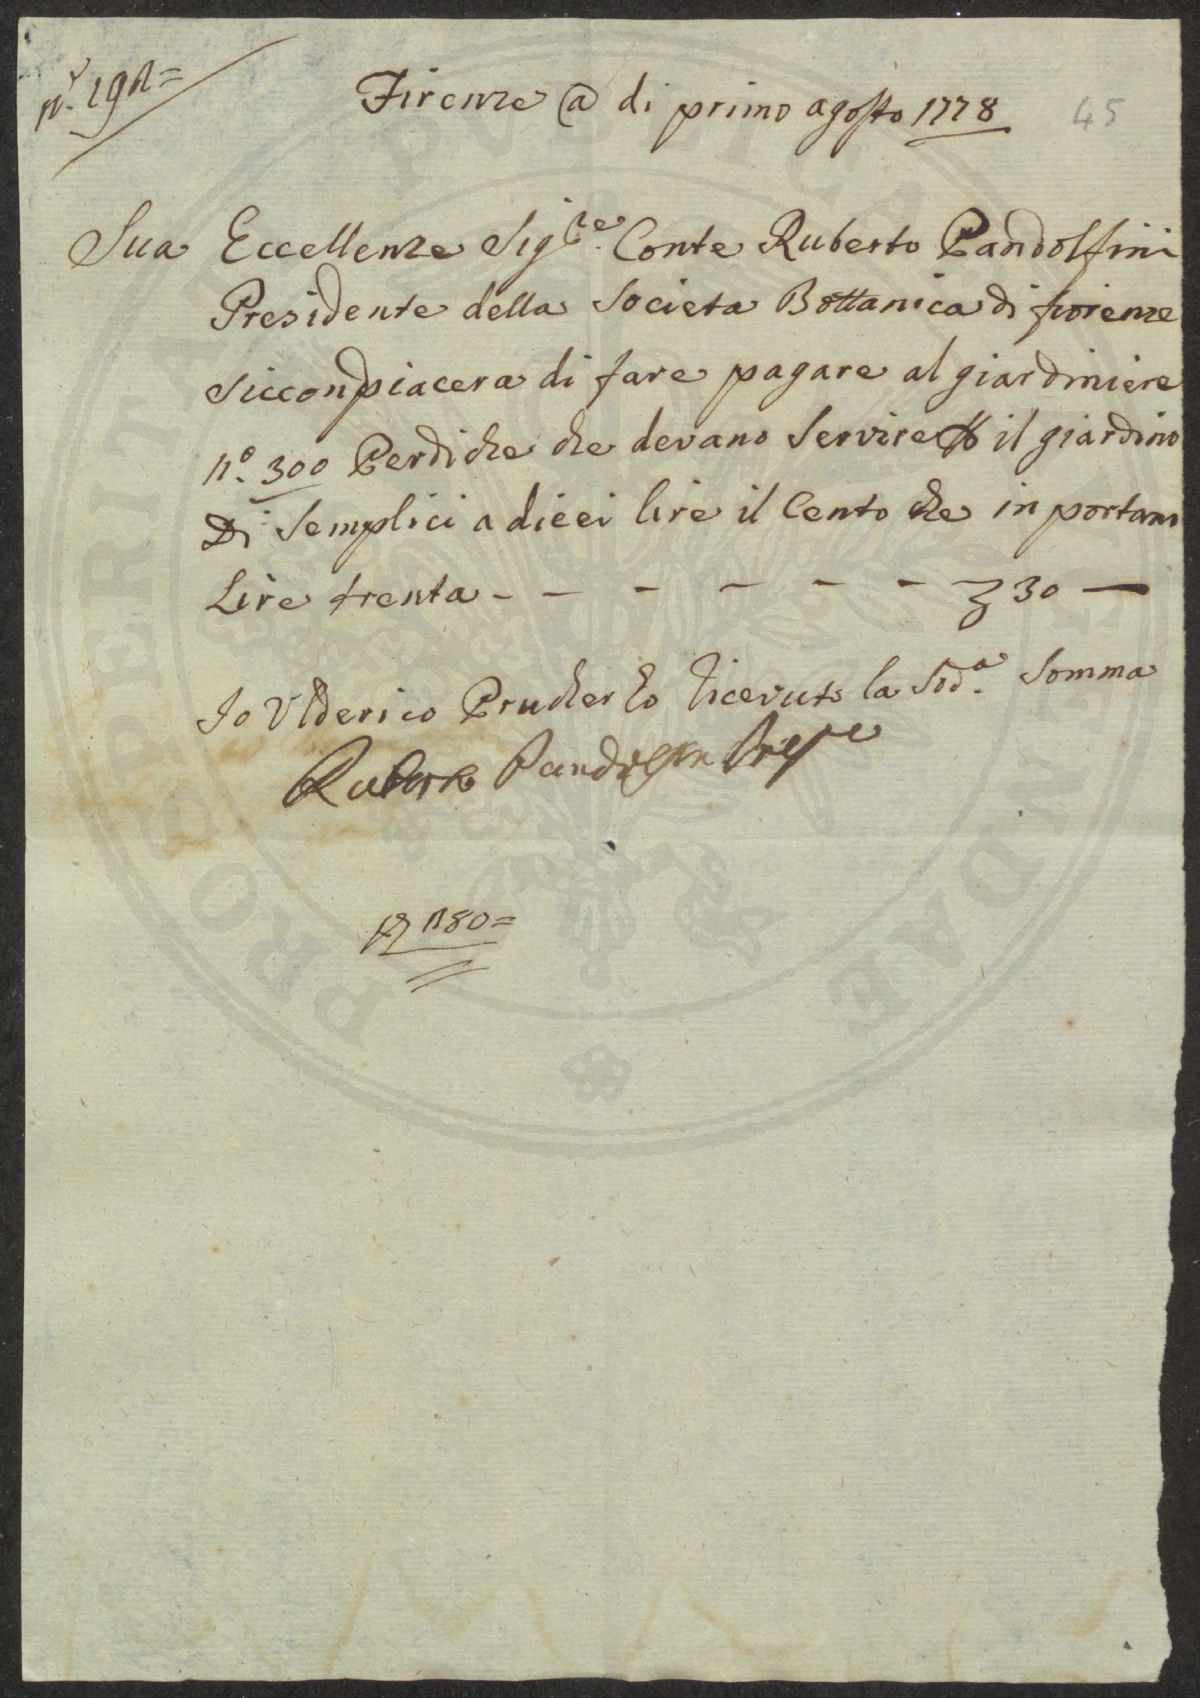 Firenze @ di primo agosto 1778
45
Sua Eccellenze Sig.re Conte Ruberto Pandolfini
Presidente della Societa Bottanica di fiorenze
Siccondpiacera di fare pagare al giardiniere
n.o 300 Perdiche che devano Servire il giardino
Di Semplici a dieci lire il Cento che in portano
Lire trenta - - - - - - 30 —
Io Vlderico Prucher ho Ricevuto la Sod.a Somma
Ruberto Pandolfini Pres.e